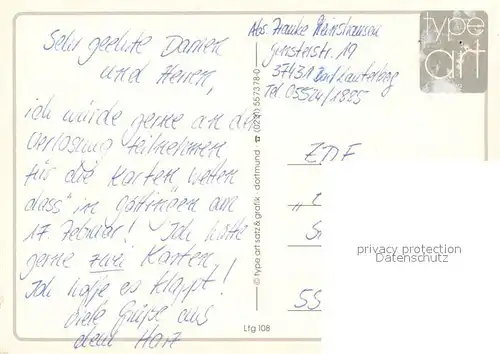 Sehr geehrte Damen
und Herren,
ich würde gerne an der
Verlosung teilnehmen
für die Karten "Wetten
dass" in Göttingen am
17. Februar! Ich hätte
gerne zwei Karten.
Ich hoffe es klappt!
Viele Grüße aus
dem Harz
Abs. Frauke
19
37431 Bad Lauterberg
Tel. 05524/1885
type
art
© type art satz & grafik dortmund (0231) 557378-0
ZDF
privacy protection
Datenschutz
SS
Lfg 108